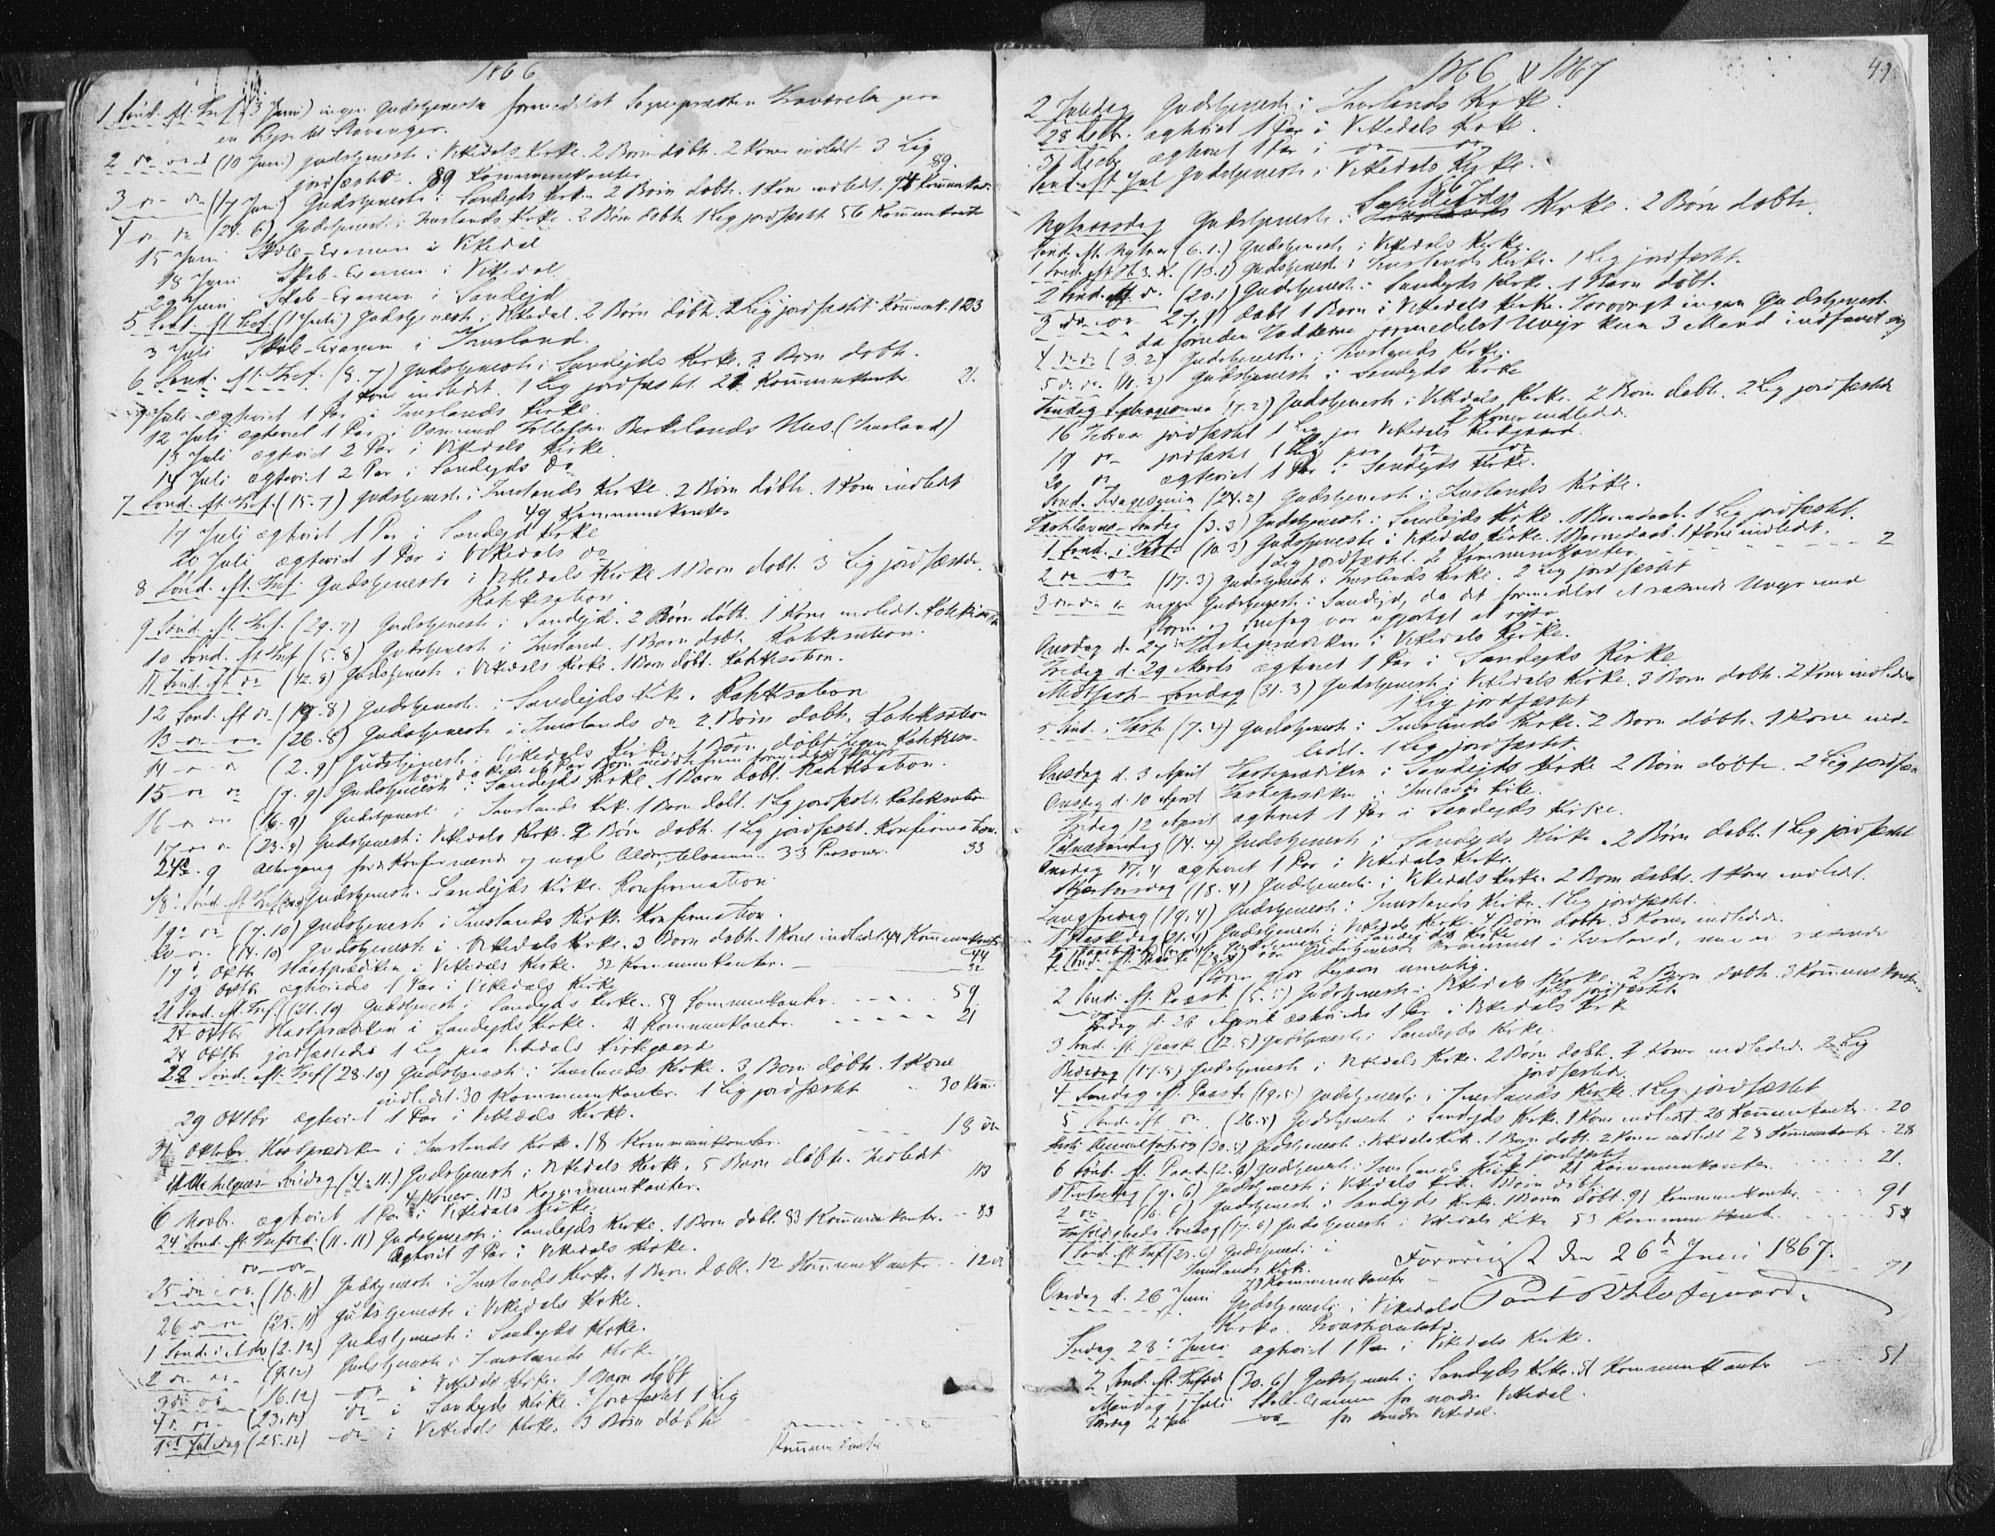 1866
1 Sønd. ft. Tref. (3 Juni) ingen Gudstjeneste formedelst Sognepræsten Fraværelse paa
en Rejse til Stavanger.
2 do do (10 Juni) Gudstjeneste i Vikedals Kirke. 2 Børn døbte. 2 Koner indledt. 3 Lig
jordfæstet. 89 Kommunikanter 89.
3 do do (17 Juni) Gudstjeneste i Sandejds Kirke. 2 Børn døbte. 1 Kone indledt. Kommunikanter
4 do do (24. 6) Gudstjeneste i Imslands Kirke. 2 Børn døbte 1 Lig jordfæstet 56 Kommunikanter
15 Juni Skole-Examen i Vikedal
18 Juni Skole-Examen i Vikedal
29 Juni Skole-Examen i Sandejd
5 Sønd. ft. Tref. (1 Juli) Gudstjeneste i Vikedal. 2 Børn døbte. 2 Lig jordfæstet Kommunik. 123
3 Juli Skole-Examen i Imsland.
6 Sønd. ft. Tref. (8. 7) Gudstjeneste i Sandejds Kirke. 3 Børn døbte.
1 Kone indledt. 1 Lig jordfæstet. 21 Kommunikanter 21.
9 Juli ægteviet 1 Par i Imslands Kirke.
12 Juli ægteviet 1 Par i Osmund Tollefsen Birkelands Hus. (Imsland)
13 Juli ægteviet 2 Par i Vikedals Kirke.
14 Juli ægteviet 2 Par i Sandejds do
7 Sønd. ft. Tref. (15. 7) Gudstjeneste i Imslands Kirke. 2 Børn døbte. 1 Kone indledt
49 Kommunikanter
17 Juli ægteviet 1 Par i Sandejd Kirke
20 Juli ægteviet 1 Par i Vikedals do
8 Sønd. ft. Tref. Gudstjeneste i Vikedals Kirke 1 Barn døbt. 3 Lig jordfæstede.
Katekisation.
9 Sønd. ft. Tref. (29. 7) Gudstjeneste i Sandejd. 2 Børn døbte. 1 Kone indledt. Katekisation
10 Sønd. ft. Tref. (5. 8) Gudstjeneste i Imsland. 1 Barn døbt. Katekisation.
11 Sønd. ft. do (12. 8) Gudstjeneste i Vikedals Kirke. 1 Barn døbt. Katekisation.
12 Sønd. ft. do (19. 8) Gudstjeneste i Sandejds Kirke. Katekisation
13 do do (26. 8) Gudstjeneste i Imslands do 2 Børn døbte. Katekisation
14 do do (2. 9) Gudstjeneste i Vikedals Kirke. 1 Barn døbt Ingen Katekisa-
15 do do (9. 9) Gudstjeneste i Sandejds Kirke. 1 Barn døbt. Katekisation.
16 do do (16. 9) Gudstjeneste i Imslands Kirke. 1 Barn døbt. 1 Lig jordfæstet. Katekisation
17 do do (23. 9) Gudstjeneste i Vikedals Kirke. 2 Børn døbte. 1 Lig jordfæstet. Konfirmation.
24de. 9 Altergang for Konfirmerede og nogle 33 Personer. 33
18 Sønd. ft. Tref. Gudstjeneste i Sandejds Kirke. Konfirmation.
19 do (7. 10) Gudstjeneste i Imslands Kirke. Konfirmation.
20 do (14. 10) Gudstjeneste i Vikedals Kirke. 3 Børn døbte. 1 Kone indledt. 44 Kommunikanter 44
17 Oktbr Høstprædiken i Vikedals Kirke. 32 Kommunikanter. 32
19 Oktbr ægteviedes 1 Par i Vikedals Kirke
21 Sønd. ft. Tref. (21. 10) Gudstjeneste i Sandejds Kirke. 59 Kommunikanter. 59
24 Oktbr Høstprædiken i Sandejds Kirke. 21 Kommunikanter. 21
24 Oktbr jordfæstedes 1 Lig paa Vikedals Kirkegaard
22 Sønd. ft. Tref (28. 10) Gudstjeneste i Imslands Kirke. 3 Børn døbte. 1 Kone
indledt. 30 Kommunikanter. 1 Lig jordfæstet 30 Kom.
29 Oktbr ægteviet 1 Par i Vikedals Kirke.
31 Oktober Høstprædiken i Imslands Kirke. 18 Kommunikanter. 18 do
Alle helgens Søndag (4. 11.) Gudstjeneste i Vikedals Kirke. 5 Børn døbte. Indledt
4 Koner. 113 Kommunikanter. 113
6 Novbr. ægteviet 1 Par i Vikedals Kirke.
24 Sønd. ft. Trefold. (11. 11) Gudstjeneste i Sandejds Kirke. 1 Barn døbt. 83 Kommunikanter. 83
do do ægteviet 1 Par i Vikedals Kirke.
25 do do (18. 11) Gudstjeneste i Imslands Kirke. 1 Barn døbt. 12 Kommunikanter 12 do
26 do do (25. 11) Gudstjeneste i Vikedals Kirke.
1 Sønd. i Adv (2. 12) Gudstjeneste i Sandejds Kirke.
2 do do (9. 12) Gudstjeneste i Imslands Kirke
3 do do (16. 12) do i Vikedals Kirke. 1 Barn døbt
4 do do (23. 12) do i Sandejds Kirke. Jordfæstet 1 Lig
1ste Juledag (25. 12) do i Vikedals Kirke. 3 Børn døbte
Kommunikanter
1866 & 1867
49
2 Juledag Gudstjeneste i Imslands Kirke.
28 Decbr. ægteviet 1 Par i Vikedals Kirke.
31 Decbr ægteviet 1 Par i do do
Sønd. ft. Jul Gudstjeneste i Vikedals Kirke.
1867
Nytaarsdag Gudstjeneste i Sandejds Kirke. 2 Børn døbte.
Sønd. ft. Nytaar (6. 1.) Gudstjeneste i Vikedals Kirke.
1 Sønd. ft. H. 3. K. (13. 1) Gudstjeneste i Imslands Kirke. 1 Lig jordfæstet.
2 Sønd. ft. do (20. 1) Gudstjeneste i Sandejds Kirke. 1 Barn døbt.
3 do do 27. 1) døbt 1 Barn i Vikedals Kirke. Forøvrigt ingen Gudstjeneste
da foruden Fadderne formedelst Uvejr kun 3 Mand indfandt sig
4 do do (3. 2) Gudstjeneste i Imslands Kirke.
5 do do (10. 2) Gudstjeneste i Sandejds Kirke
Søndag Septuagesima (17. 2) Gudstjeneste i Vikedals Kirke. 2 Børn døbte. 2 Lig jordfæstede
2 Koner indledede.
16 Februar jordfæstet 1 Lig paa Vikedals Kirkegaard.
19 do jordfæstet 1 Lig paa do do
20 do ægteviet 1 Par i Sandejds Kirke.
Sønd. Sexagesima (24. 2) Gudstjeneste i Imslands Kirke.
Fastelavns-Søndag (3. 3) Gudstjeneste i Sandejds Kirke. 1 Barnedaab. 1 Lig jordfæstet.
1 Sønd. i Faste (10. 3) Gudstjeneste i Vikedals Kirke. 1 Barnedaab. 1 Kone indledt.
1 Lig jordfæstet. 2 Kommunikanter 2
2 do do (17. 3) Gudstjeneste i Imslands Kirke. 2 Lig jordfæstet
3 do do ingen Gudstjeneste i Sandejd, da det formedelst et rasende Uvejr med
Storm og Snefog var ugjørligt at rejse
Onsdag d. 27 Fasteprædiken i Vikedals Kirke.
Fredag d. 29 Marts ægteviet 1 Par i Sandejds Kirke
Midfaste Søndag (31. 3) Gudstjeneste i Vikedals Kirke. 3 Børn døbte. 2 Koner indledede
1 Lig jordfæstet
5 Sønd. i Faste (7. 4) Gudstjeneste i Imslands Kirke. 2 Børn døbte. 1 Kone ind-
ledt. 1 Lig jordfæstet.
Onsdag d. 3 April Fasteprædiken i Sandejds Kirke 2 Børn døbte. 2 Lig jordfæs
Onsdag d. 10 April Fasteprædiken i Imslands Kirke.
Fredag 12 April ægteviet 1 Par i Sandejds Kirke.
Palmesøndag (14. 4) Gudstjeneste i Sandejds Kirke. 2 Børn døbte. 1 Lig jordfæstet
Onsdag 17. 4 ægteviet 1 Par i Vikedals Kirke.
Skjærtorsdag (18. 4) Gudstjeneste i Vikedals Kirke. 2 Børn døbte. 1 Kone indledt.
Langfredag (19. 4) Gudstjeneste i Imslands Kirke. 1 Lig jordfæstet.
1 Paaskedag (21. 4) Gudstjeneste i Vikedals Kirke. 4 Børn døbte. 3 Koner indledede.
1 Sønd. ft. Paaske (28. 4) var Gudstjeneste berammet i Imsland, men en rasende
Storm gjør Rejsen umulig.
2 Sønd. ft. Paaske (5. 5) Gudstjeneste i Vikedals Kirke. 2 Børn døbte. 3 Kommunikanter
1 Lig jordfæstet.
Fredag d. 26 April ægtevidedes 1 Par i Vikedals Kirke
3 Sønd. ft. Paaske (12. 5) Gudstjeneste i Sandejds Kirke.
Bededag (17. 5) Gudstjeneste i Vikedals Kirke. 2 Børn døbte. 2 Koner indledede. 2 Lig
jordfæstede.
4 Søndag ft. Paaske (19. 5) Gudstjeneste i Imslands Kirke. 1 Lig jordfæstet
5 Sønd. ft. do (26. 5) Gudstjeneste i Sandejds Kirke. 1 Kone indledt 20 Kommunikanter 20
Kristi Himmelfartsdag (30. 5) Gudstjeneste i Vikedals Kirke. 1 Barn døbt. 2 Koner indledt 28 Kommunikanter 28
1 Lig jordfæstet
6 Sønd. ft. Paaske (2. 6) Gudstjeneste i Imslands Kirke 21 Kommunikanter 21.
1 Pintsedag (9. 6) Gudstjeneste i Vikedals Kirke. 1 Barn døbt.
2 do Gudstjeneste i Sandejds Kirke. 1 Barn døbt. 91 Kommunikanter. 91
Trefoldigheds Søndag (16. 6) Gudstjeneste i Vikedals Kirke 53 Kommunikant. 53
1 Sønd. ft. Tref. (23. 6) Gudstjeneste i
Imslands Kirke.
71 Kommunikanter 71
Forevist den 26de Juni 1867.
Onsdag d. 26 Juni Gudstjeneste i Vikedals
Kirke. Provstevisitats.
Fredag 28de Juni ægteviet 1 Par i Vikedals Kirke.
2 Sønd. ft. Trefold (30. 6) Gudstjeneste i Sandejds Kirke. 51 Kommunikanter 51
Mandag 1 Juli Skole-Examen for nordre Vikedal.
Tirsdag 2 Juli do for søndre Vikedal.